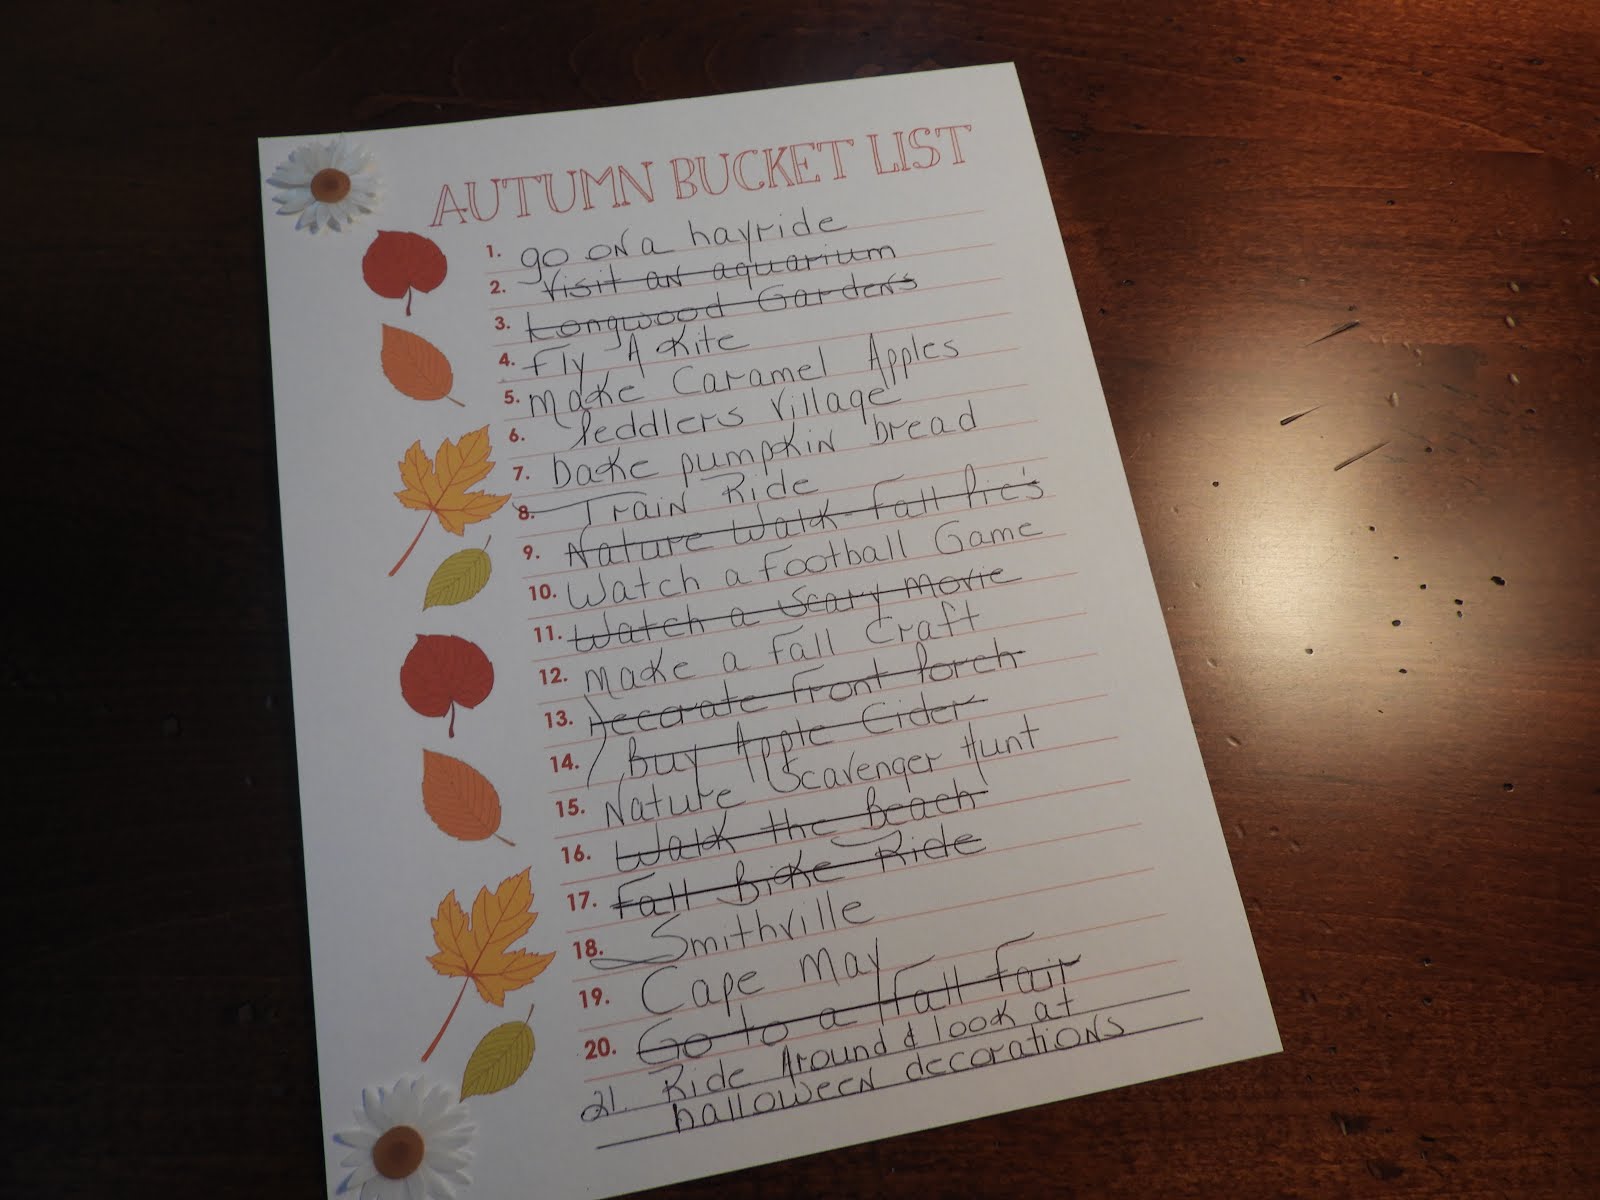 AUTUMN BUCKET LIST
1. go on a hayride
2. Visit an aquarium
3. Longwood Gardens
4. Fly A Kite
5. Make Caramel Apples
6. Peddlers Village
7. bake pumpkin bread
8. Train Ride
9. Nature Walk - Fall Pic's
10. Watch a Football Game
11. Watch a Scary Movie
12. Make a Fall Craft
13. Decorate Front Porch
14. Buy Apple Cider
15. Nature Scavenger Hunt
16. Walk the Beach
17. Fall Bike Ride
18. Smithville
19. Cape May
20. Go to a Fall Fair
21. Ride Around & look at
halloween decorations